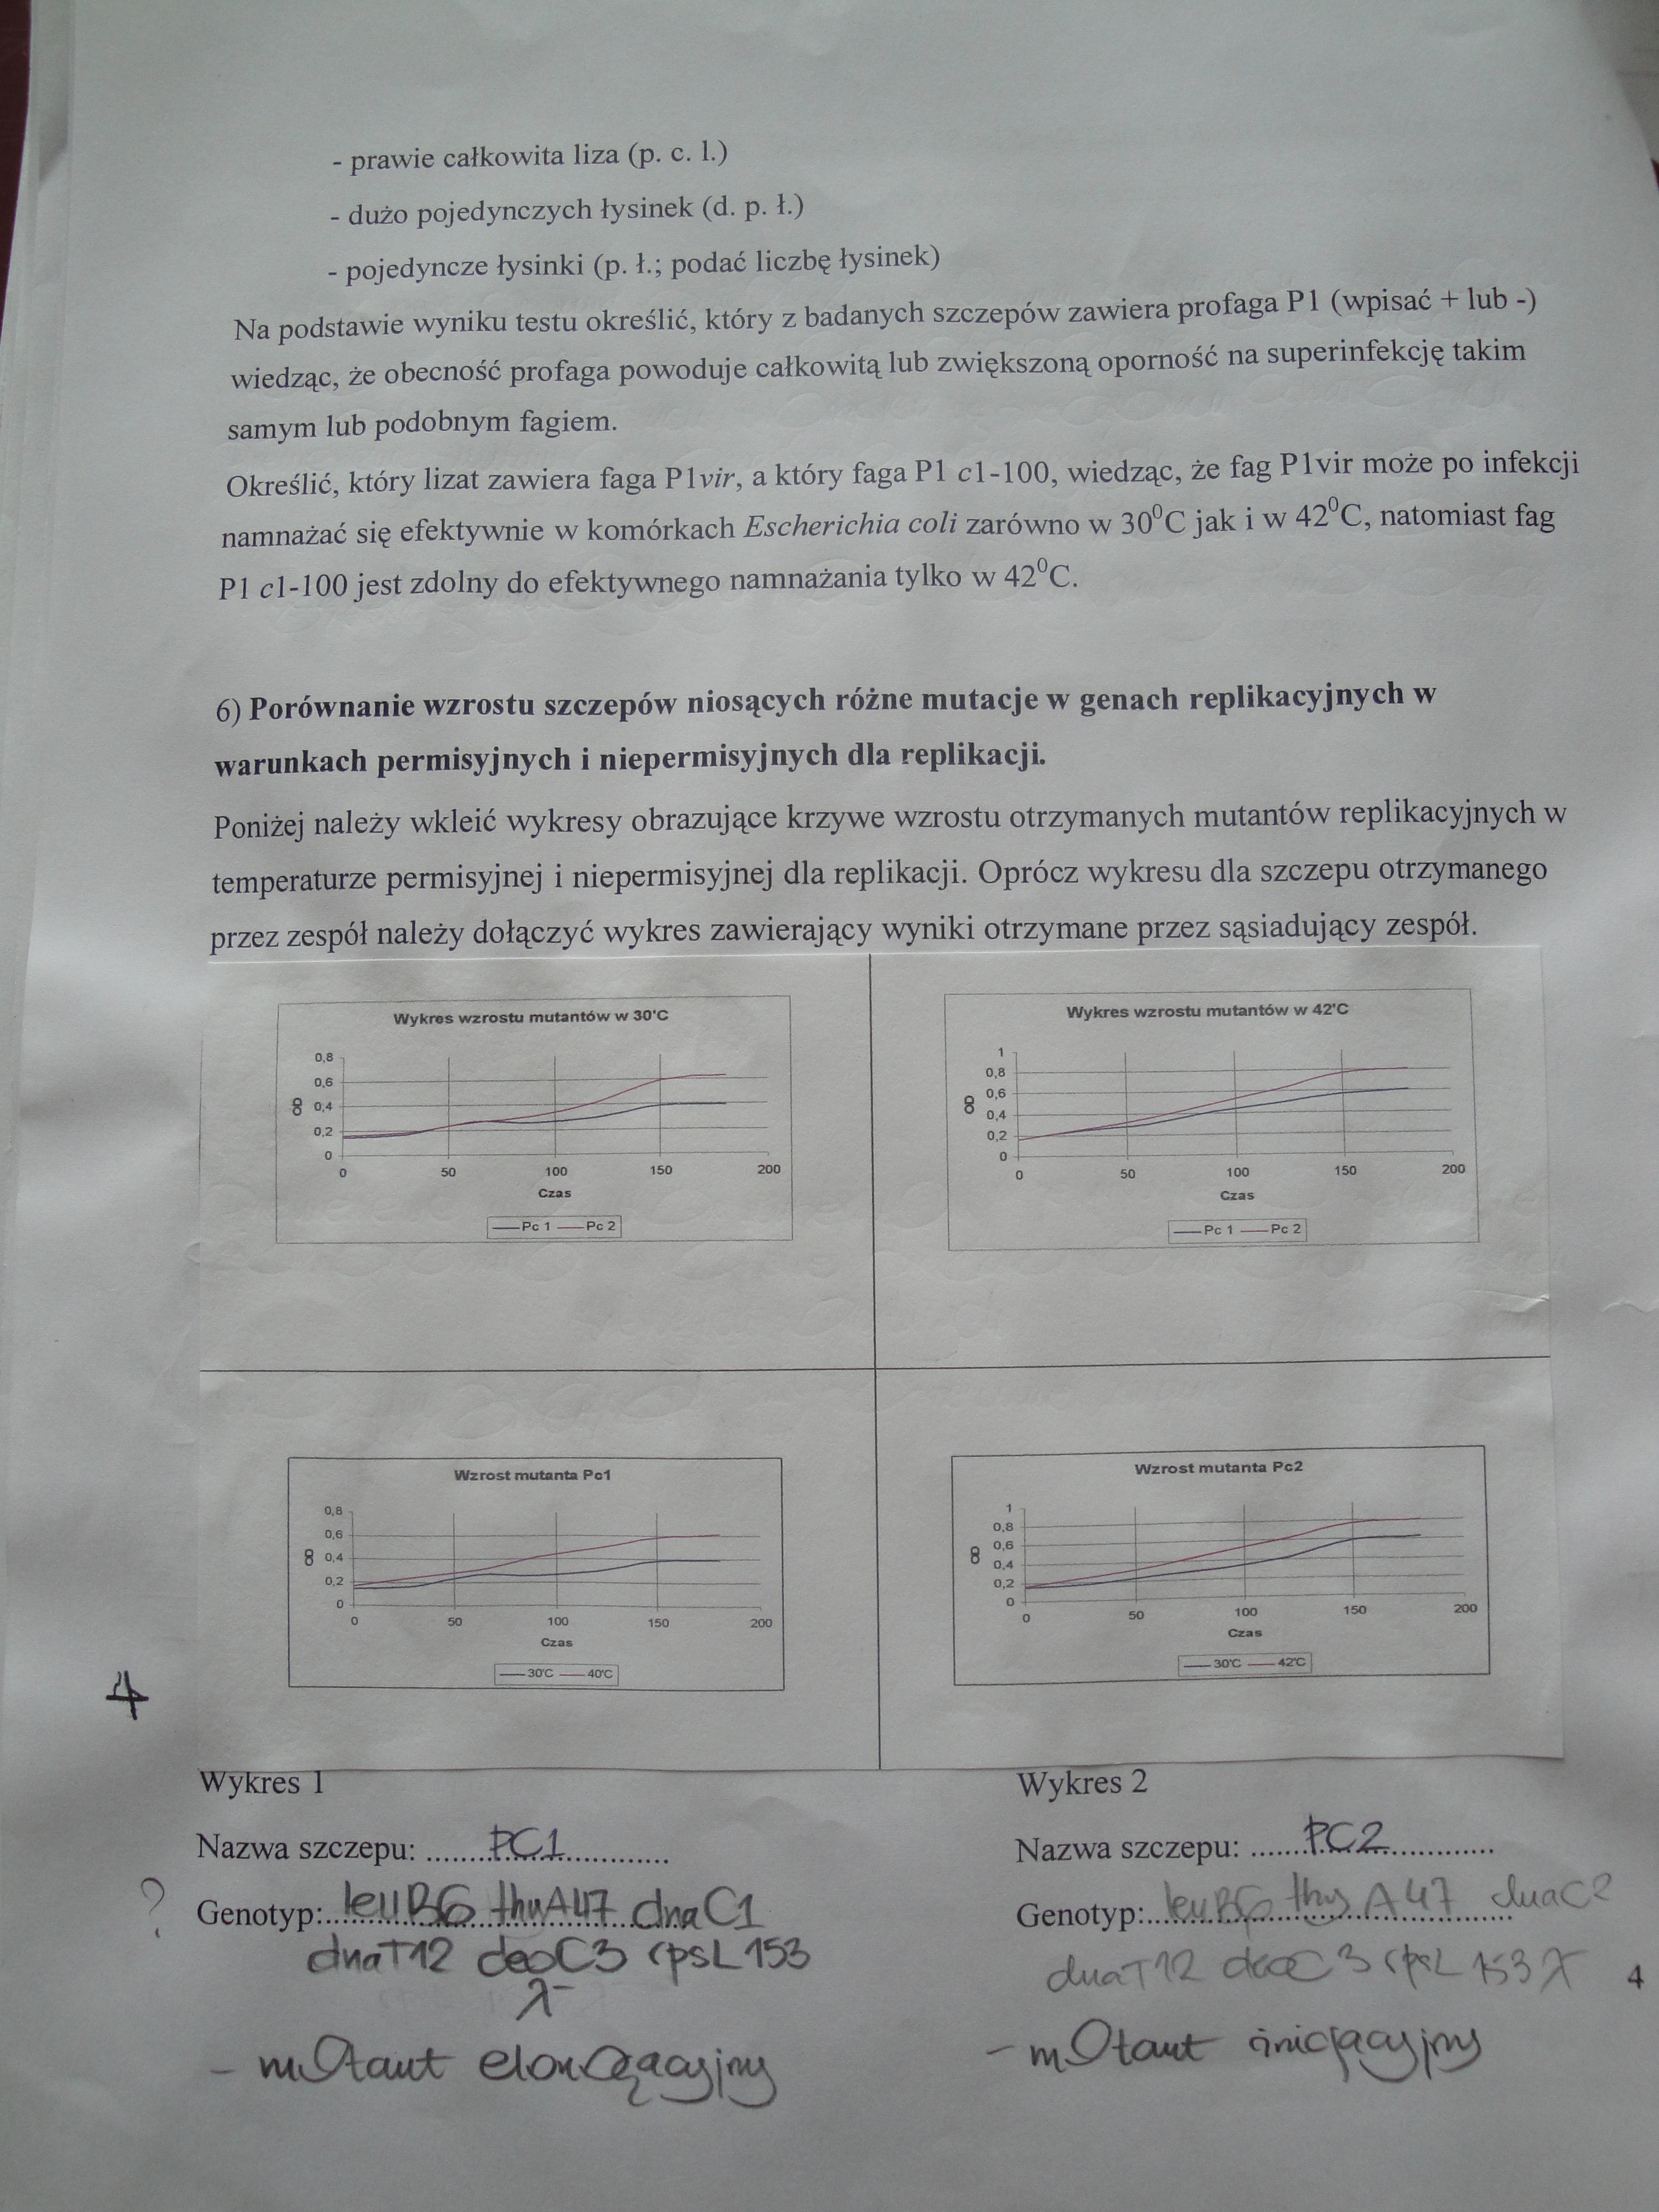 - prawie całkowita liza (p. c. l.)
- dużo pojedynczych łysinek (d. p. ł.)
- pojedyncze łysinki (p. ł.; podać liczbę łysinek)
Na podstawie wyniku testu określić, który z badanych szczepów zawiera profaga P1 (wpisać + lub -)
wiedząc, że obecność profaga powoduje całkowitą lub zwiększoną oporność na superinfekcję takim
samym lub podobnym fagiem.
Określić, który lizat zawiera faga P1vir, a który faga P1 c1-100, wiedząc, że fag P1vir może po infekcji
namnażać się efektywnie w komórkach Escherichia coli zarówno w 30⁰C jak i w 42⁰C, natomiast fag
P1 c1-100 jest zdolny do efektywnego namnażania tylko w 42⁰C.
6) Porównanie wzrostu szczepów niosących różne mutacje w genach replikacyjnych w
warunkach permisyjnych i niepermisyjnych dla replikacji.
Poniżej należy wkleić wykresy obrazujące krzywe wzrostu otrzymanych mutantów replikacyjnych w
temperaturze permisyjnej i niepermisyjnej dla replikacji. Oprócz wykresu dla szczepu otrzymanego
przez zespół należy dołączyć wykres zawierający wyniki otrzymane przez sąsiadujący zespół.
Wykres wzrostu mutantów w 30'C
0,8
0,6
0,4
0,2
0
OD
0 50 100 150 200
Czas
Pc 1 Pc 2
Wykres wzrostu mutantów w 42'C
1
0,8
0,6
0,4
0,2
0
OD
0 50 100 150 200
Czas
Pc 1 Pc 2
Wzrost mutanta Pc1
0,8
0,6
0,4
0,2
0
OD
0 50 100 150 200
Czas
30'C 40'C
Wzrost mutanta Pc2
1
0,8
0,6
0,4
0,2
0
OD
0 50 100 150 200
Czas
30'C 42'C
4
Wykres 1
Nazwa szczepu: ......PC1.............
? Genotyp:..leuB6 thyA47 dnaC1
dnaT12 deoC3 rpsL153
λ-
- mutant elongacyjny
Wykres 2
Nazwa szczepu: ......PC2.............
Genotyp:...leuB6 thyA47 dnaC2
dnaT12 deoC3 rpsL 153 λ-
- mutant inicjacyjny
4